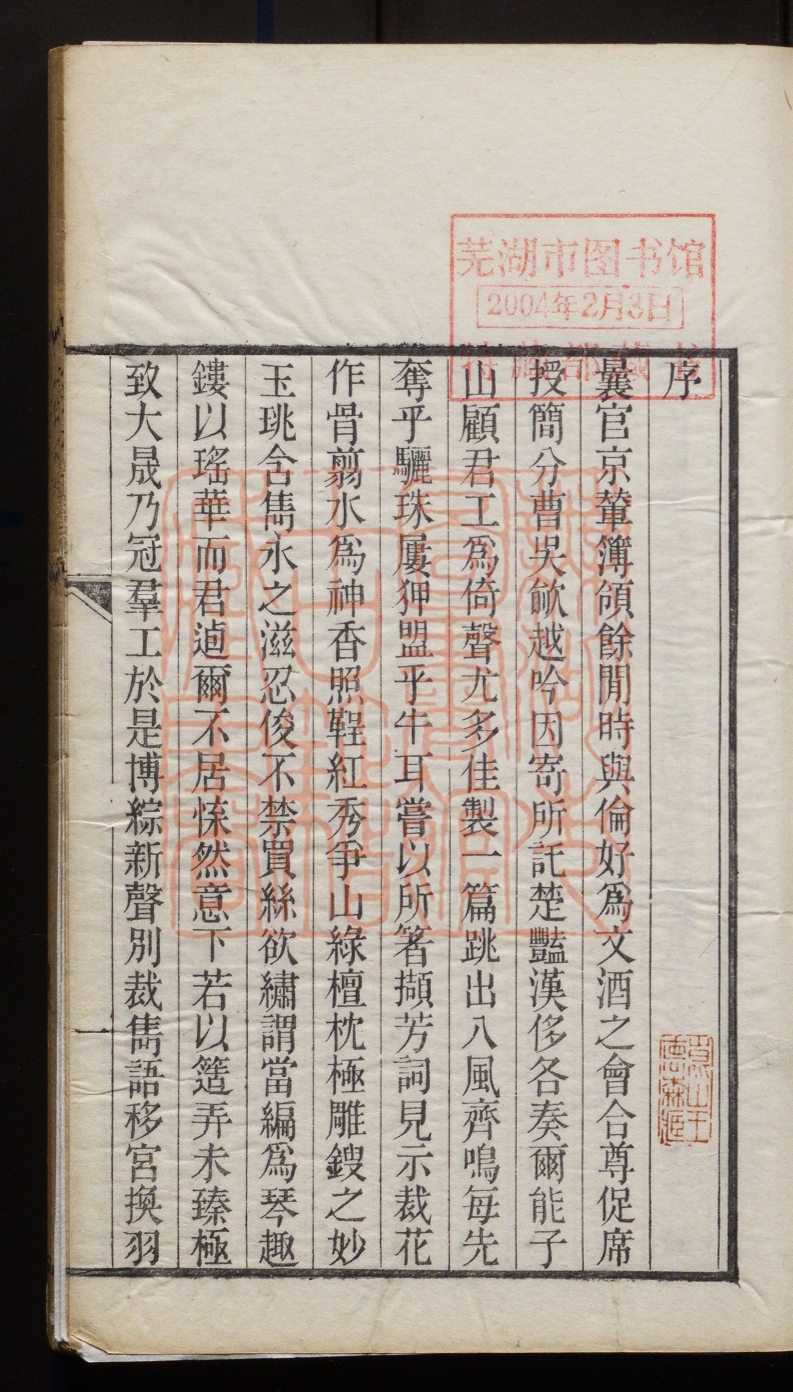 芜湖市图书馆
2004年2月3日
特藏部藏书
序
曩官京輦簿領餘閒時與倫好爲文酒之會合尊促席
授簡分曹吳歈越吟因寄所託楚豔漢侈各奏爾能子
山顧君工爲倚聲尤多佳製一篇跳出八風齊鳴每先
奪乎驪珠屢狎盟乎牛耳嘗以所箸擷芳詞見示裁花
作骨翦水爲神香照鞓紅秀爭山綠檀枕極雕鎪之妙
玉珧含雋永之滋忍俊不禁買絲欲繡謂當編爲琴趣
鏤以瑤華而君逌爾不居悚然意下若以筳弄未臻極
致大晟乃冠羣工於是博綜新聲別裁雋語移宮換羽
一